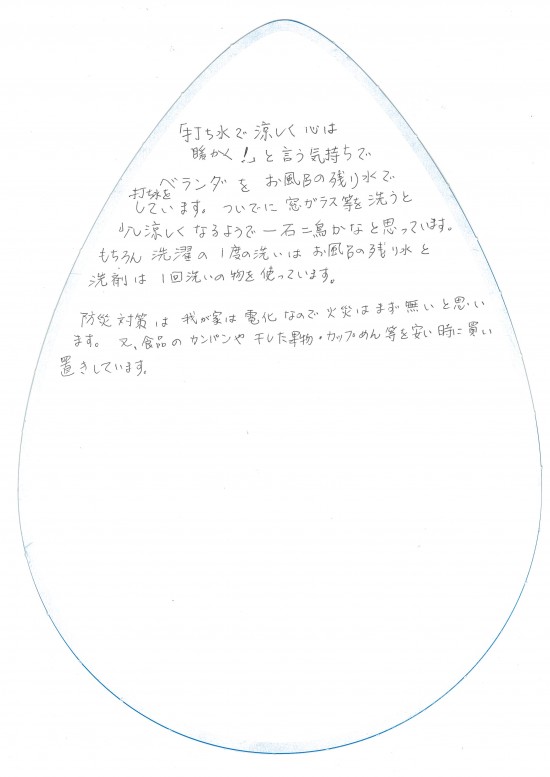 「打ち水で涼しく心は
暖かく！」と言う気持ちで
ベランダをお風呂の残り水で
打ち水を
しています。ついでに窓ガラス等を洗うと
少し涼しくなるようで一石二鳥かなと思っています。
もちろん洗濯の1度の洗いはお風呂の残り水と
洗剤は1回洗いの物を使っています。
防災対策は我が家は電化なので火災はまず無いと思い
ます。又、食品のカンパンや干した果物・カップめん等を安い時に買い
置きしています。